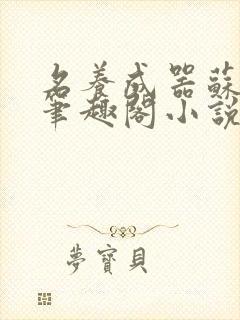 名養成器蘇
筆趣閣小說
夢寶貝